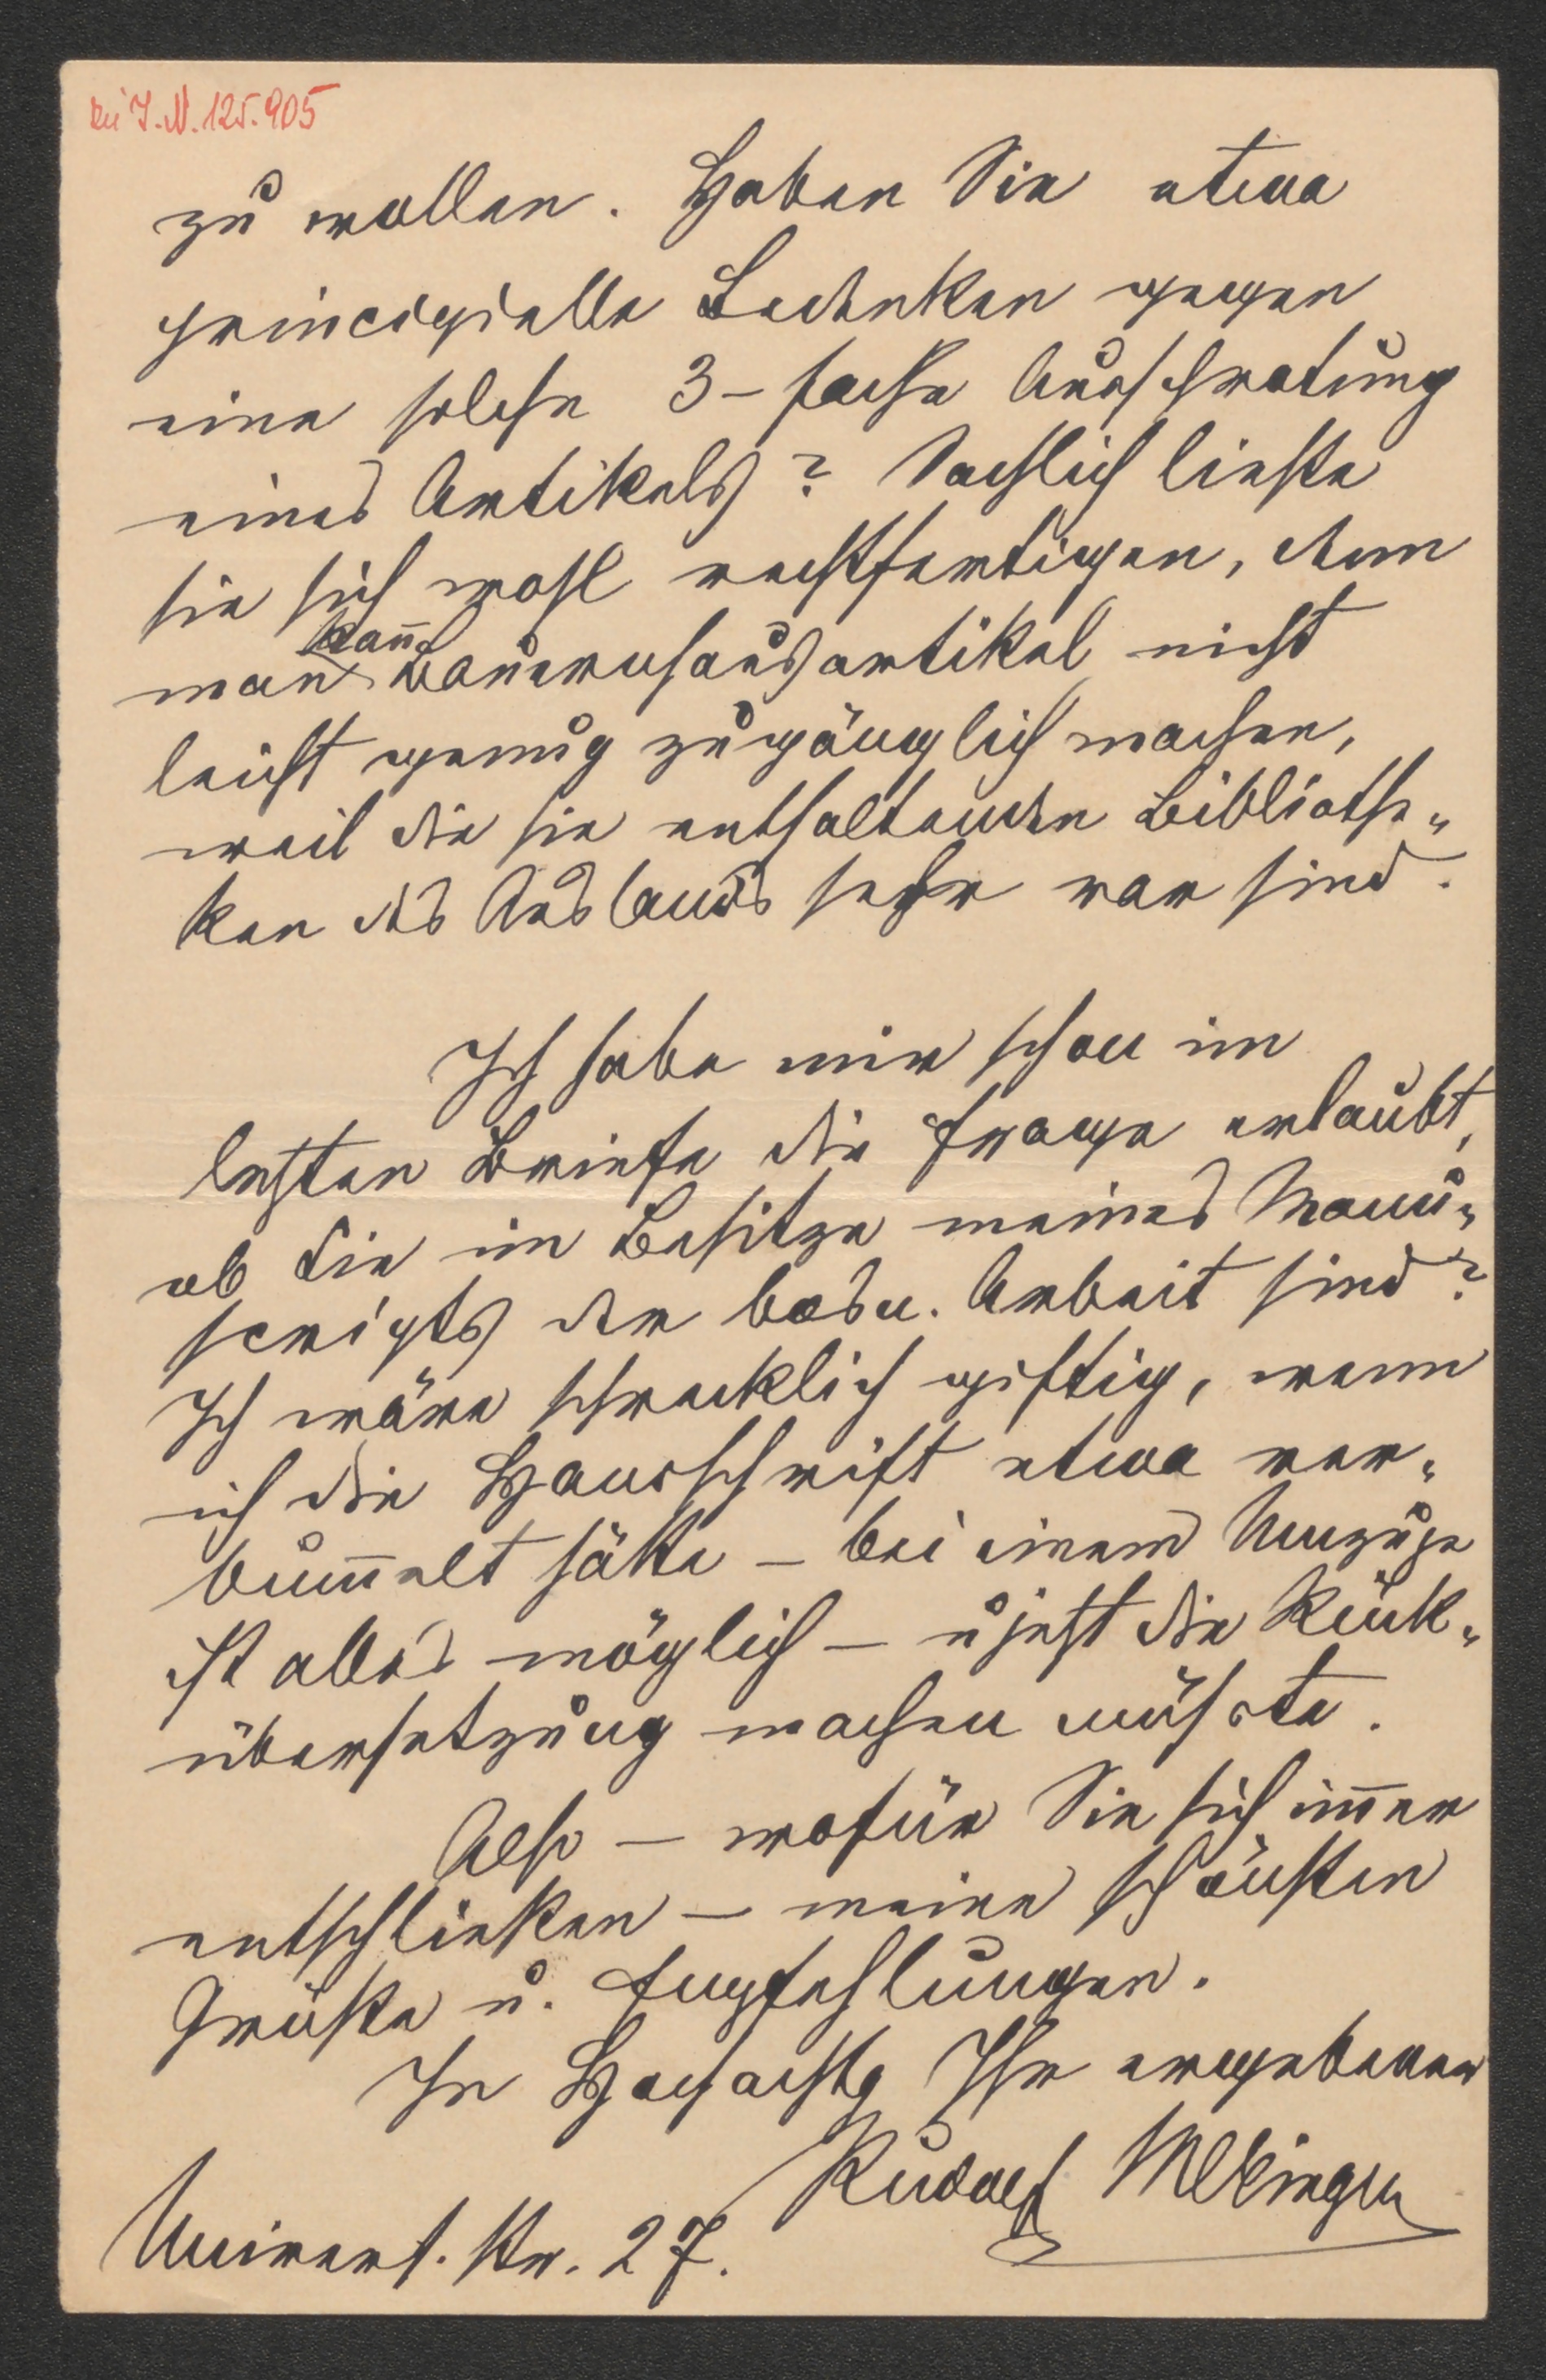 zu I.N. 125.905
zu wollen. Haben Sie etwa
principielle Bedenken gegen
eine solche 3-fache Ausschrotung
eines Artikels? Sachlich ließe
sie sich wohl rechtfertigen, denn
kan̄
man Bauernhausartikel nicht
leicht genug zugänglich machen,
weil die sie enthaltenden Bibliothe„
ken des Auslands sehr rar sind.
Ich habe mir schon im
letzten Briefe die Frage erlaubt,
ob Sie im Besitze meines Manu„
scripts der bosn. Arbeit sind?
Ich wäre schrecklich giftig, wenn
ich die Handschrift etwa ver„
bum̄elt hätte – bei einem Umzuge
ist alles möglich – u jetzt die Rück„
übersetzung machen müsste.
Also – wofür Sie sich im̄er
entschließen – meine schönsten
Grüße u. Empfehlungen.
In Hochachtg Ihr ergebener
Rudolf Meringer
Univers. Str. 27.